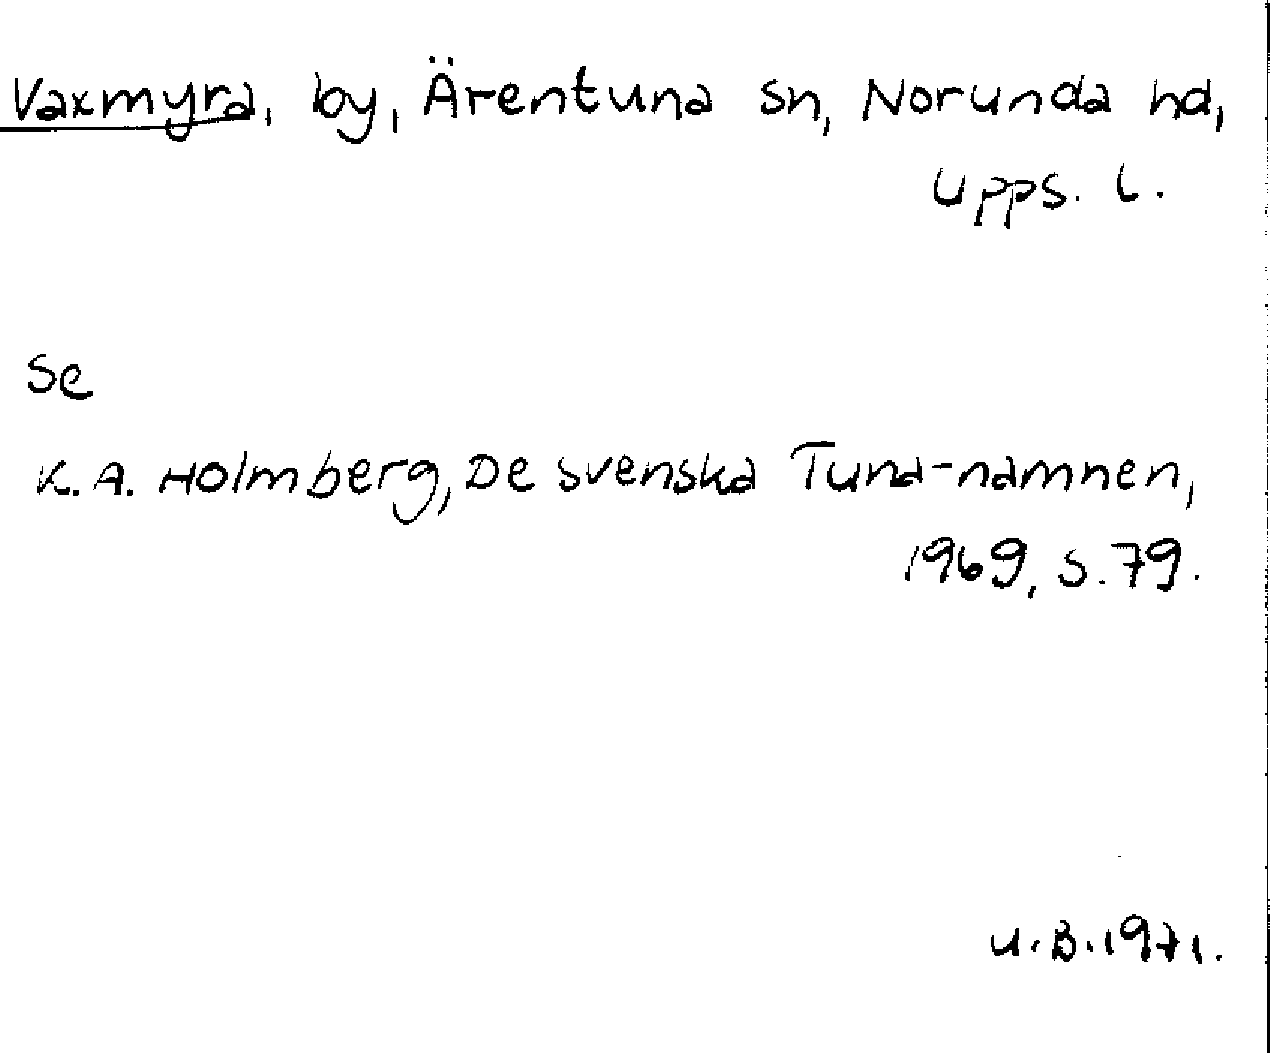 Vaxmyra, by, Ärentuna sn, Norunda hd,
Upps. l.
Se
K. A. Holmberg, De svenska Tuna-namnen,
1969, s. 79.
U.B. 1971.